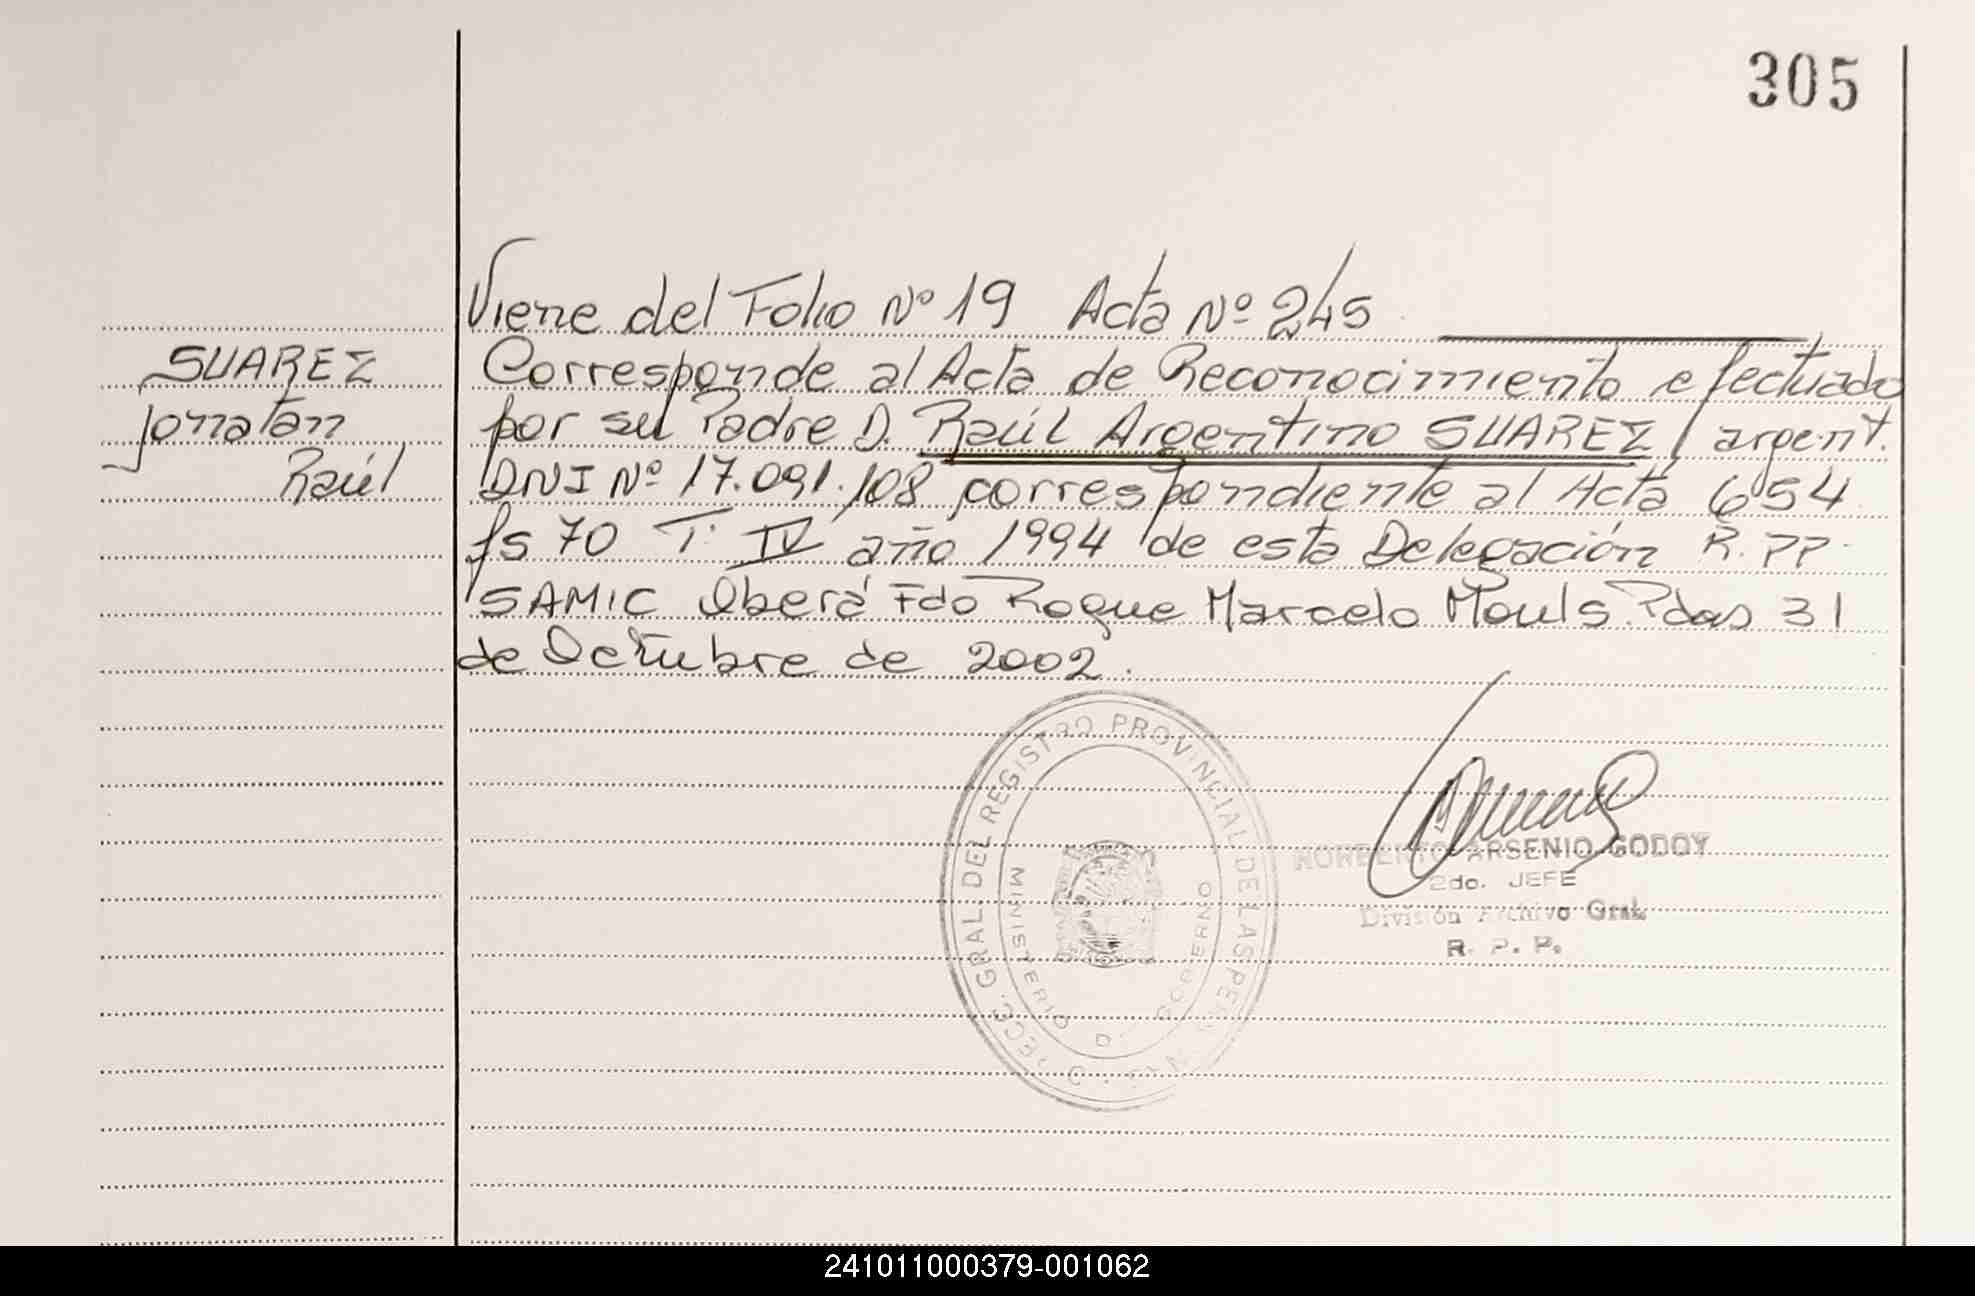 305
Viene del Folio Nº 19 Acta Nº 245
SUAREZ
Jonatan
Raúl
Corresponde al Acta de Reconocimiento efectuado
por su Padre D. Raúl Argentino SUAREZ, argent.
DNI Nº 17.091.108 correspondiente al Acta 654
fs 70 T. IV año 1994 de esta Delegación R.PP.
SAMIC Oberá Fdo Roque Marcelo Mouls. Pdas 31
de Octubre de 2002.
DIRECC. GRAL DEL REGISTRO PROVINCIAL DE LAS PERS
MINISTERIO D. GOBIERNO
NORBERTO ARSENIO GODOY
2do. JEFE
División Archivo Gral.
R. P. P.
241011000379-001062